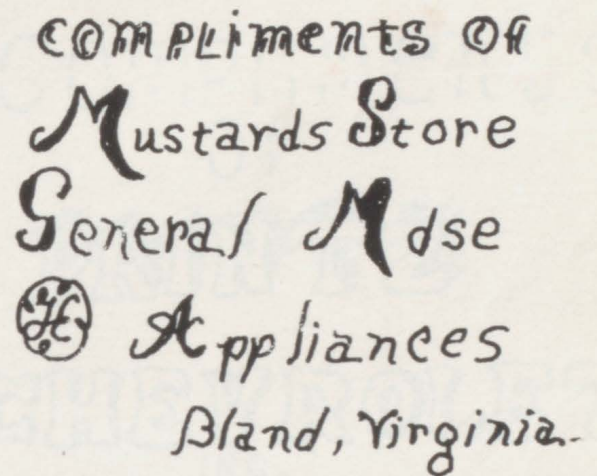 compliments of
Mustards Store
General Mdse
H Appliances
Bland, Virginia.